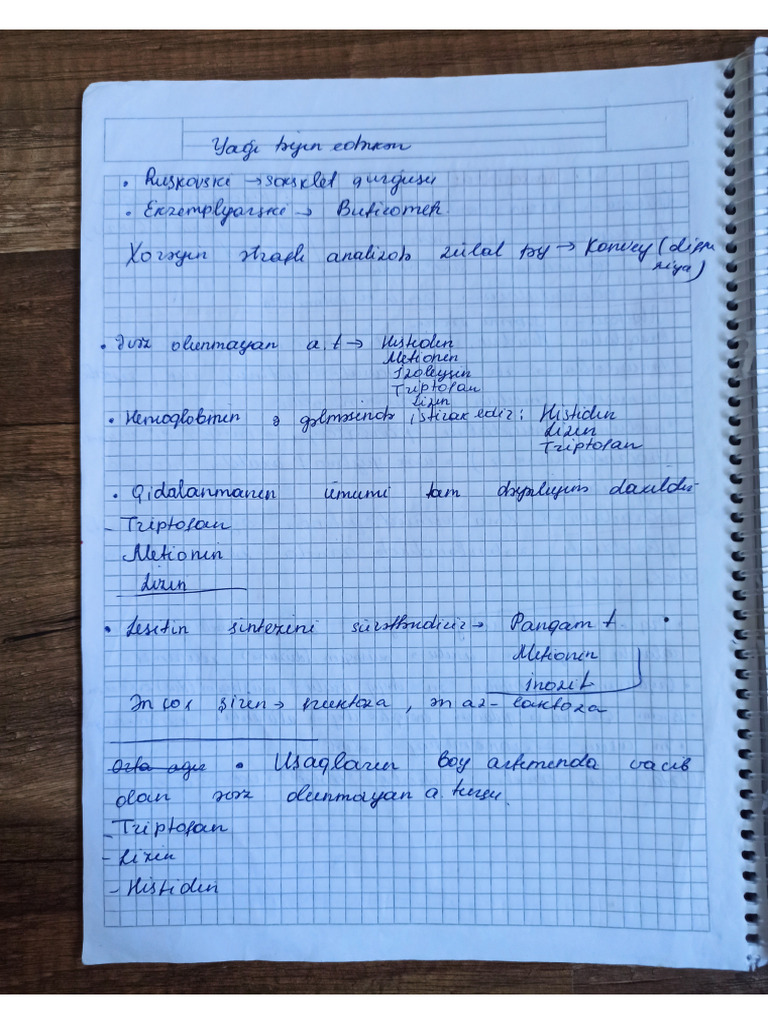 Yağı təyin edirəm
• Ruşkovski → soksklet qurğusu
• Ekzemplyarski → Butirometr
Xörəyin ətraflı analizdə zülal təy → Konvey (diffu
ziya)
• Əvəz olunmayan a.t → Histidin
Metionin
İzoleysin
Triptofan
Lizin
• Hemoqlobinin ə gəlməsində iştirak edir: Histidin
Lizin
Triptofan
• Qidalanmanın ümumi tam dəyərliyinə daxildir
– Triptofan
Metionin
Lizin
• Lesitin sintezini sürətləndirir → Panqam t.
Metionin
inozit
Ən çox şirin → fruktoza, ən az – laktoza
Orta ağır • Uşaqların boy artımında vacib
olan əvəz olunmayan a. turşu.
– Triptofan
– Lizin
– Histidin